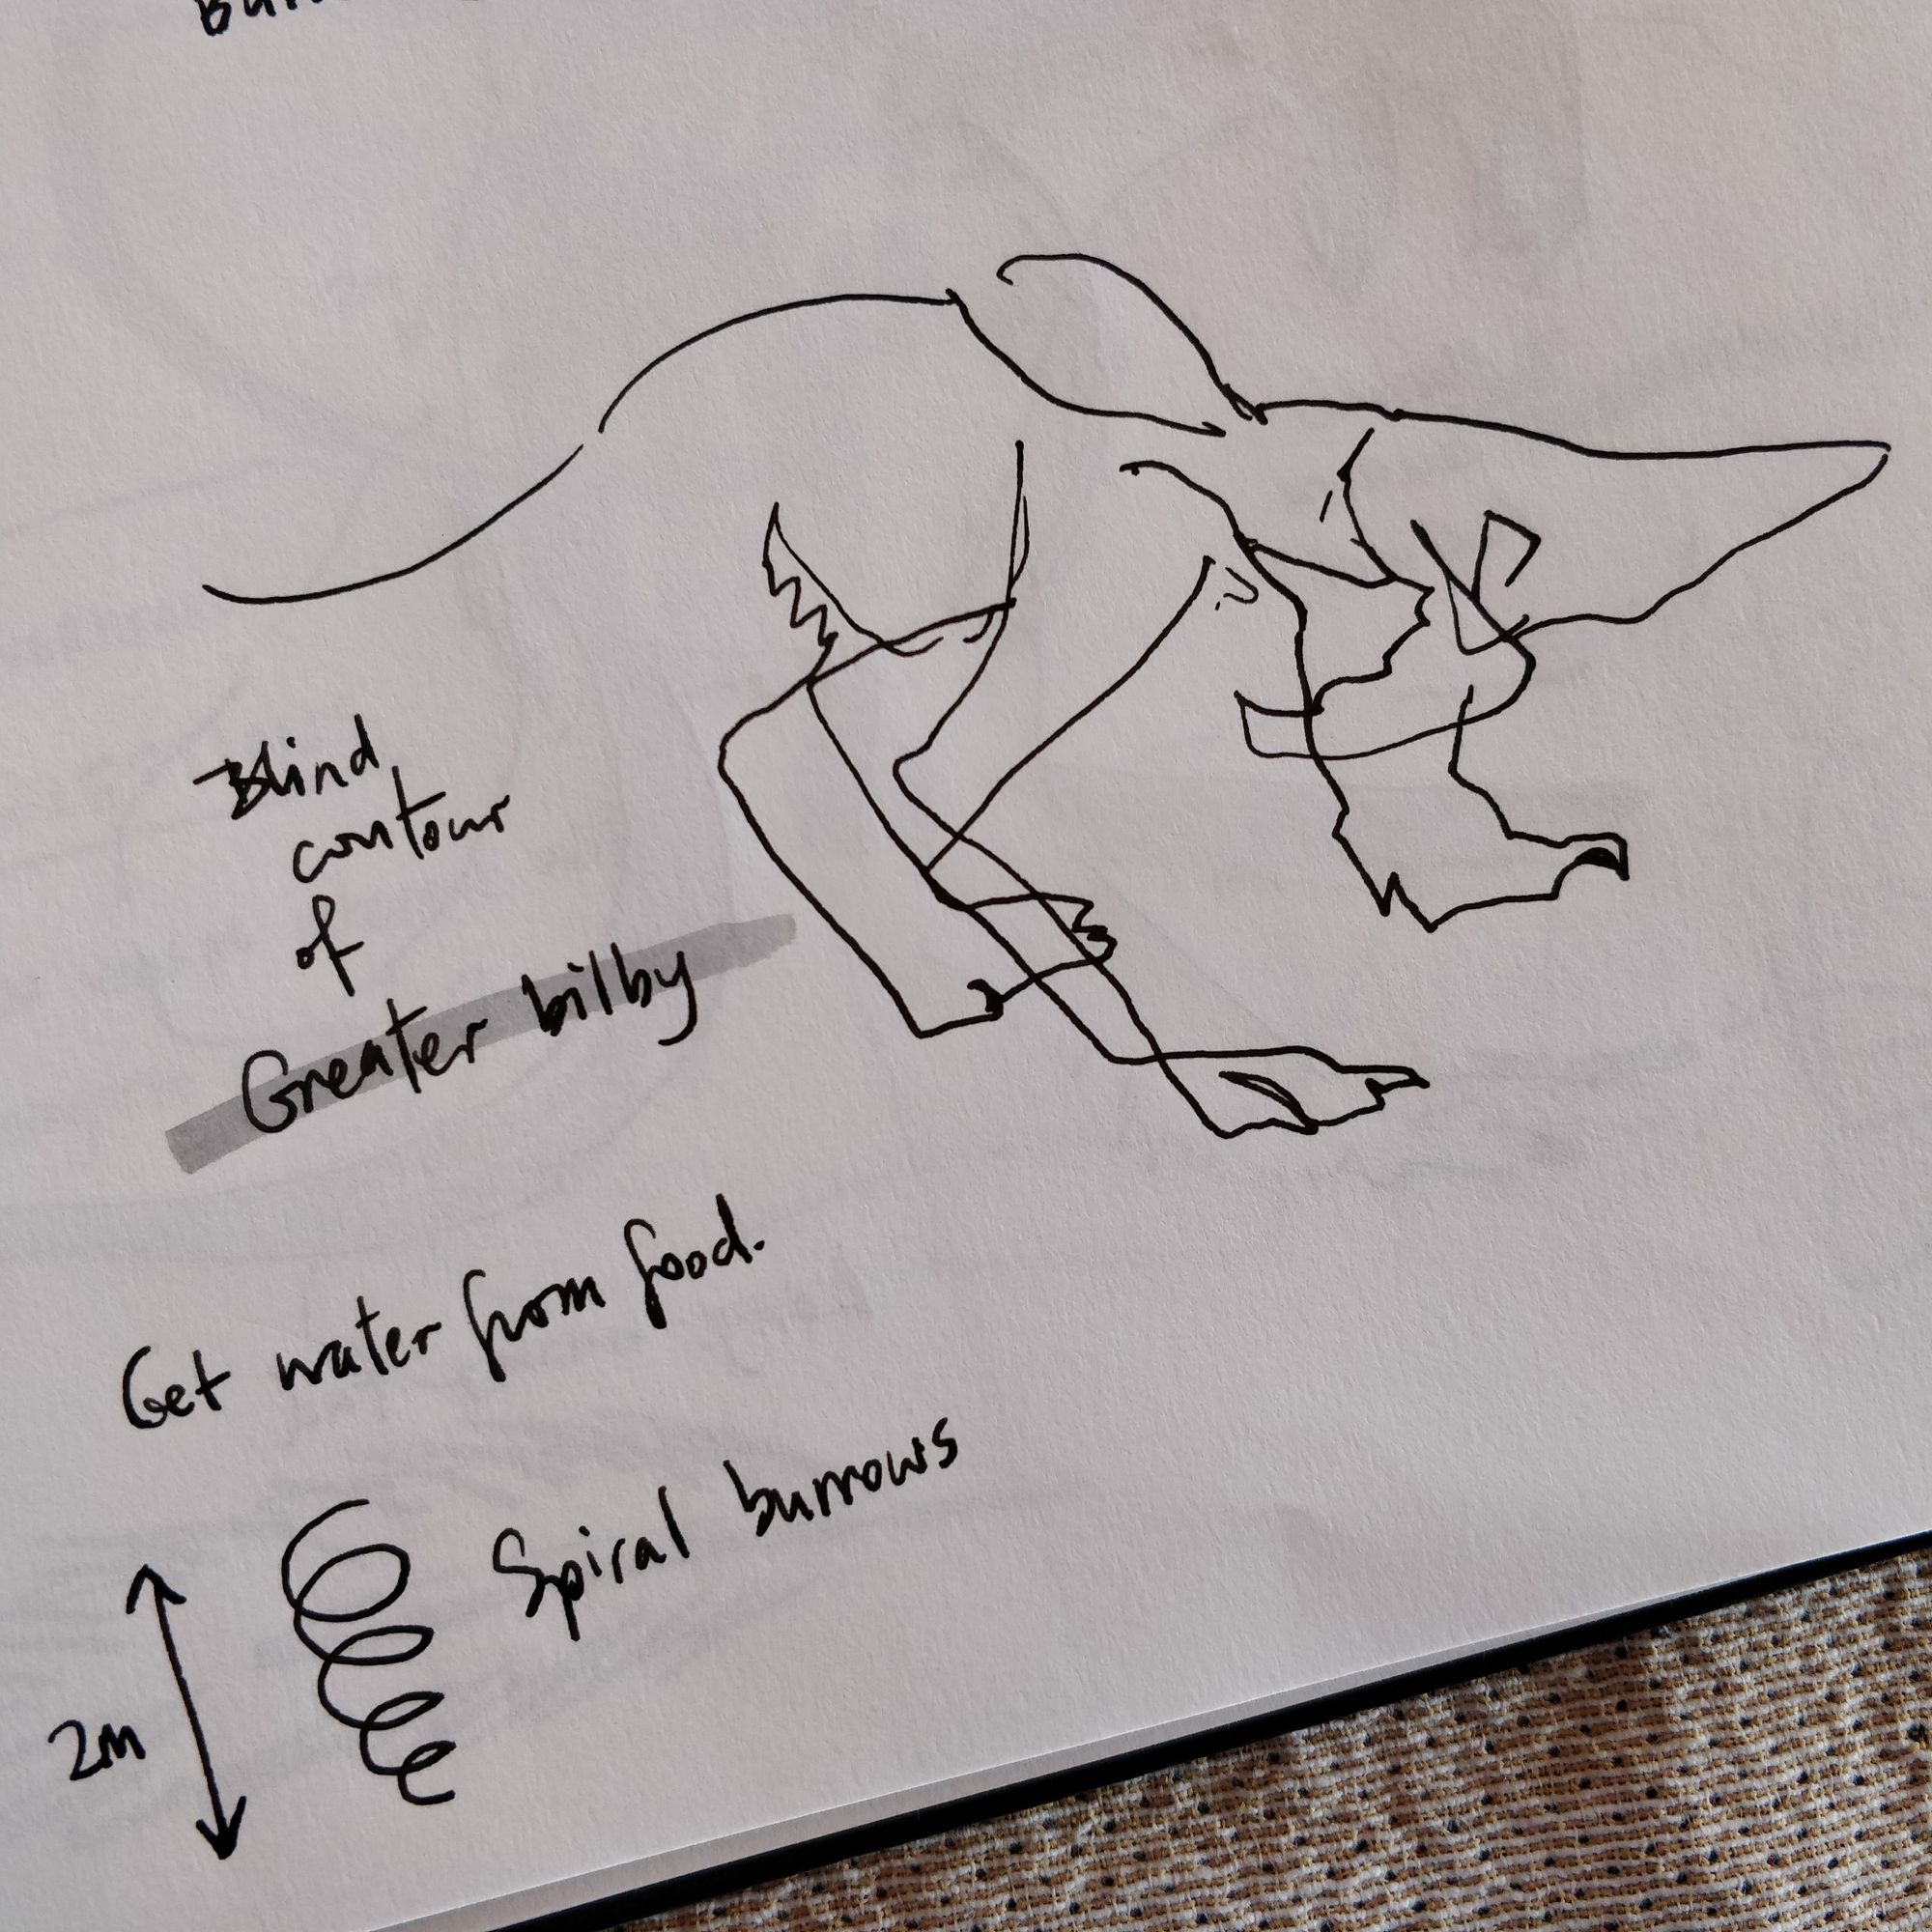 Blind
contour
of
Greater bilby
Get water from food.
Spiral burrows
2m